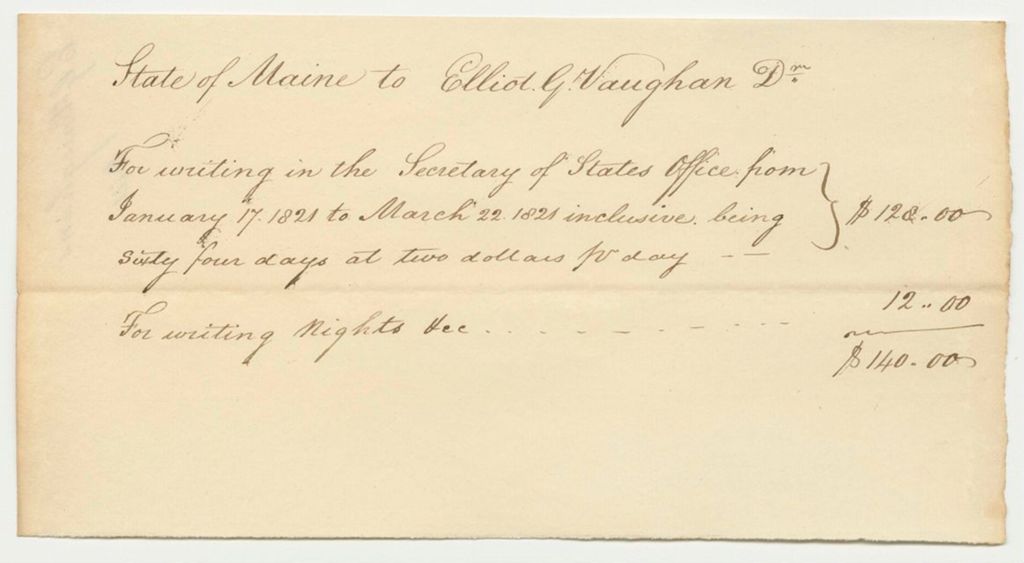 State of Maine to Elliot G. Vaughan Dr.
For writing in the Secretary of States Office from
January 17. 1821 to March 22. 1821 inclusive. being
Sixty four days at two dollars pr day - - $128.00
For writing Nights &ec . . . . - . - . - . . . 12..00
$140.00